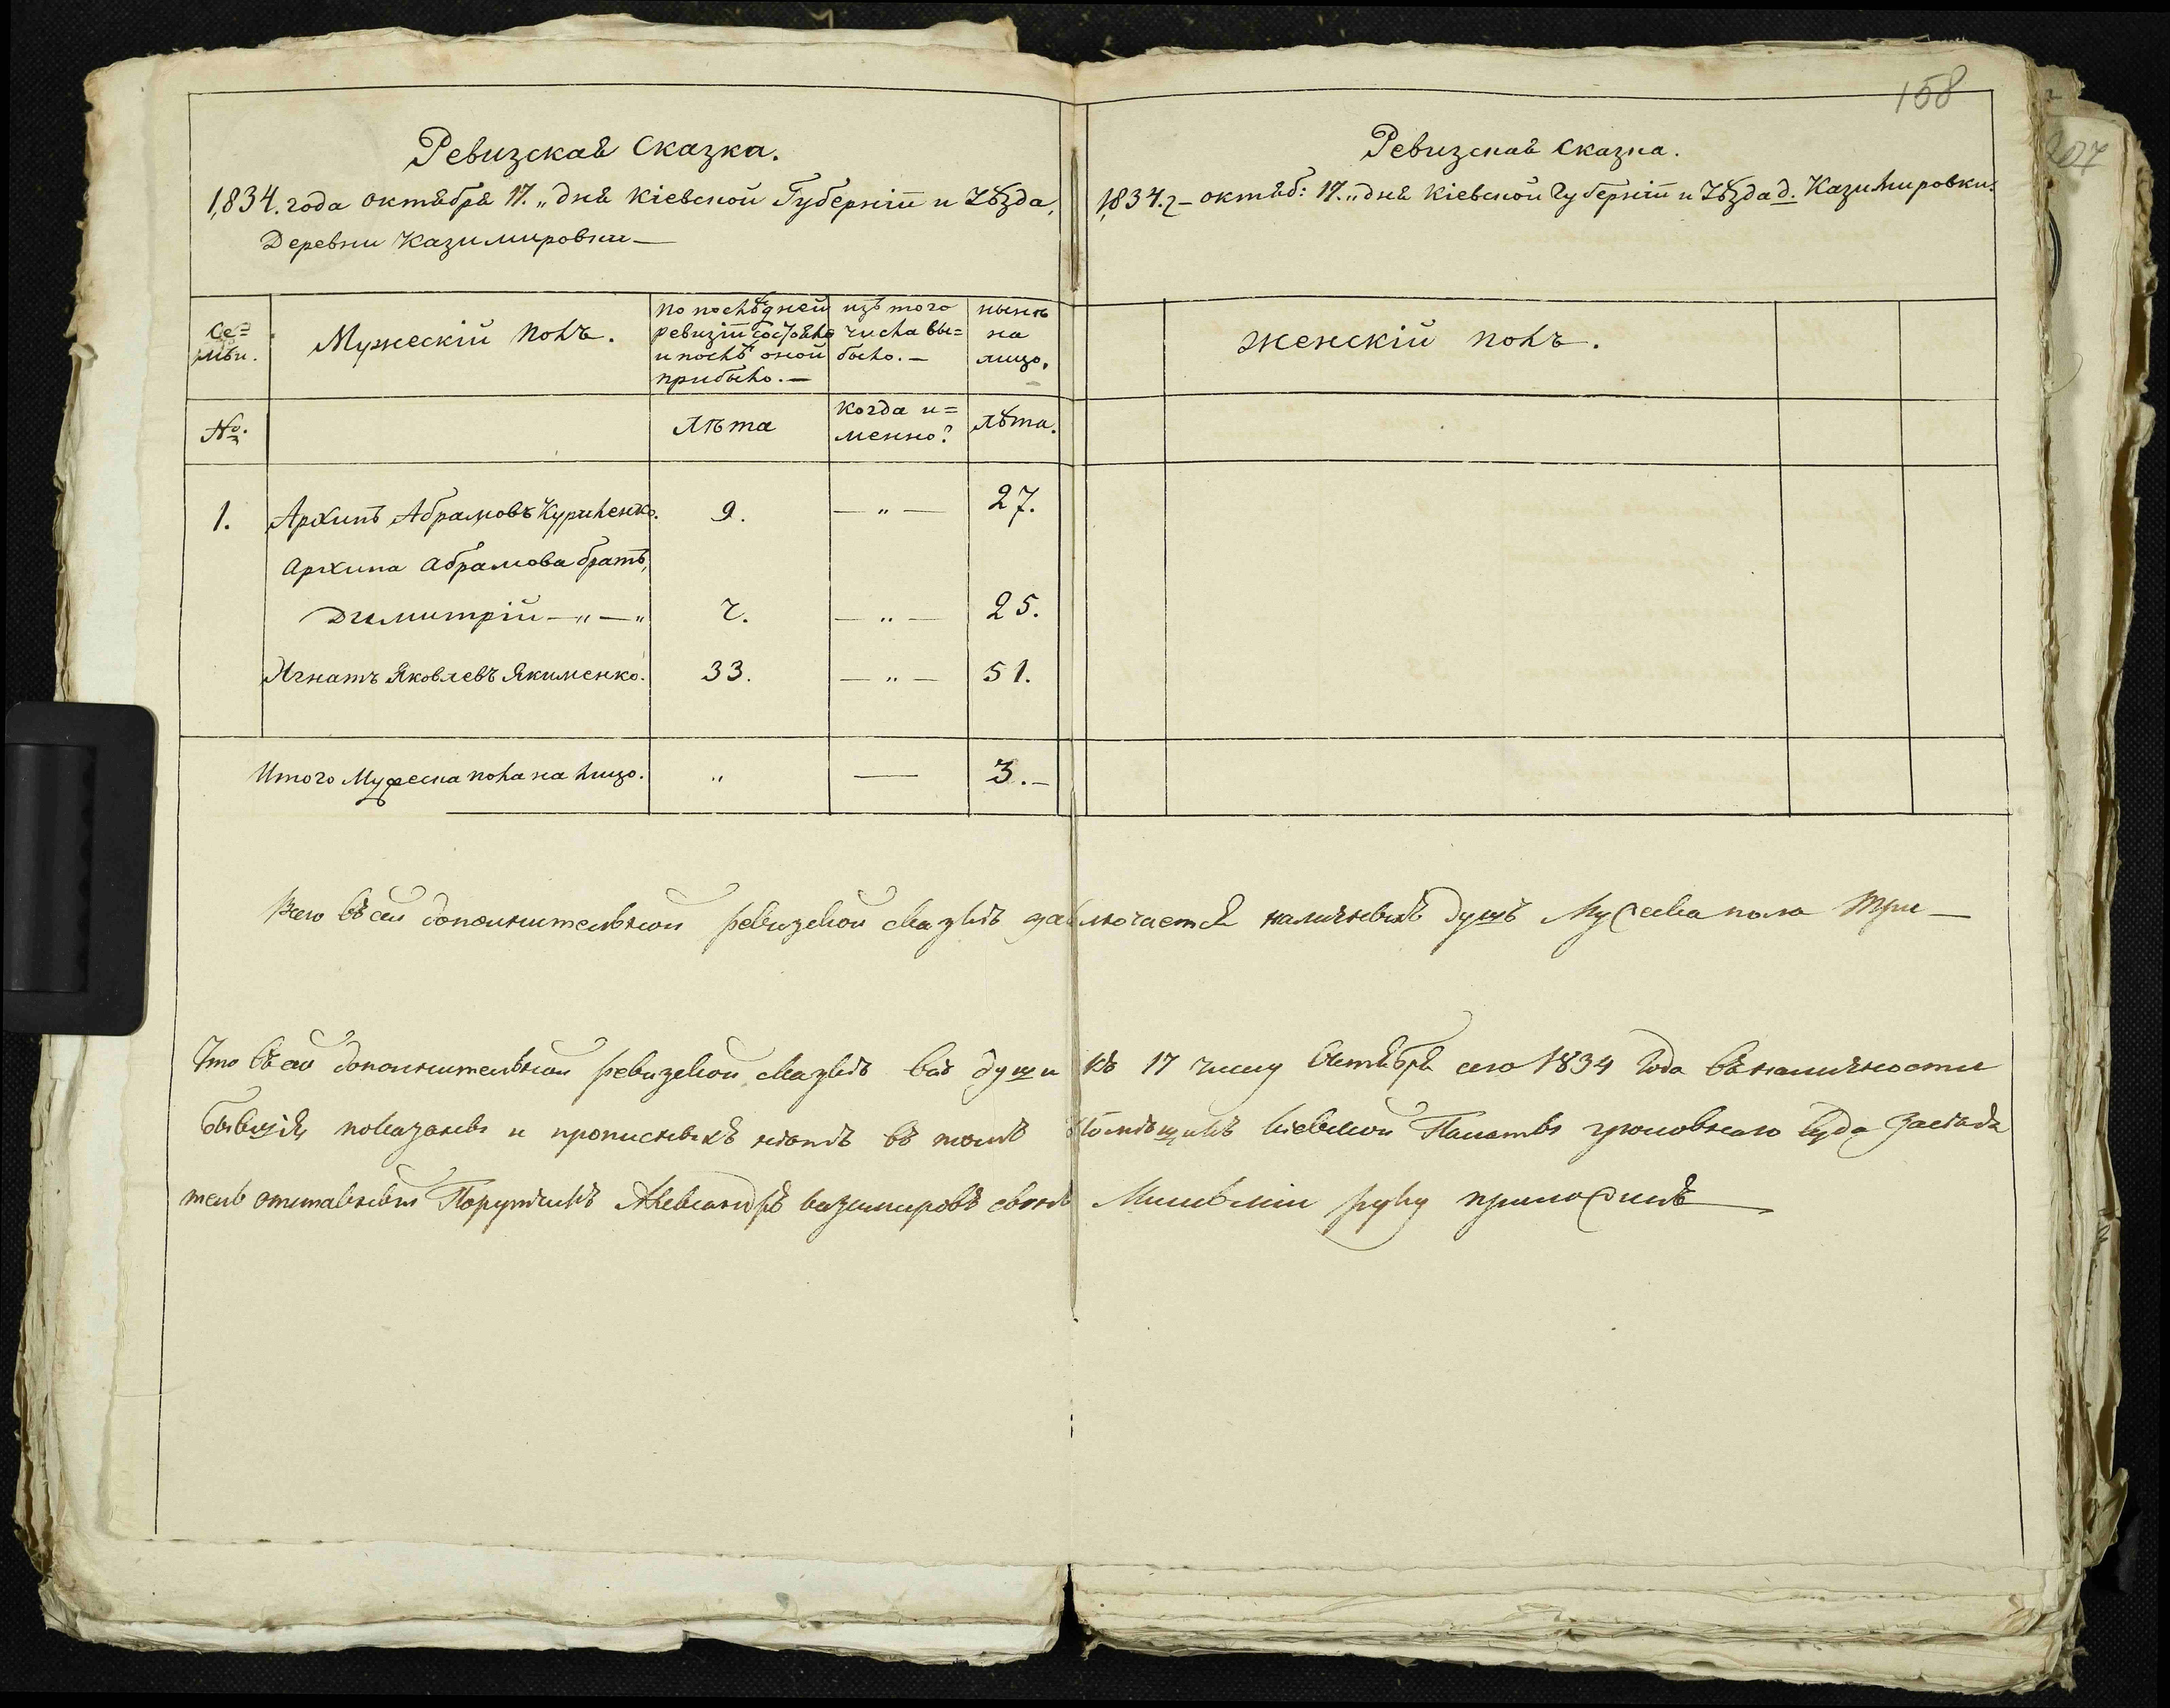 158
207
Ревизская Сказка.
1,834. года октября 17. „ дня Кіевской Губерніи и Уѣзда,
Деревни Казимировки —
Се=
мьи.
Мужескій полъ.
по послѣдней
ревизіи состояло
и послѣ оной
прибыло. —
изъ того
числа вы=
было. —
нынѣ
на
лицо.
№.
лѣта
когда и=
менно?
лѣта.
1. Архипъ Абрамовъ Куриленко. 9. — „ — 27.
Архипа Абрамова братъ,
Дмитрій — „ — „ 7. — „ — 25.
Игнатъ Яковлевъ Якименко. 33. — „ — 51.
Итого Мужеска пола на лицо. „ — 3. —
Ревизская Сказка.
1,834. г — октяб: 17. „ дня Кіевской Губерніи и Уѣзда д. Казимировки.
женскій полъ.
Всего въ сей дополнительной ревизской сказкѣ заключается наличныхъ душъ Мужеска пола три —
Что въ сей дополнительной ревизской сказкѣ всѣ души къ 17 числу Октября сего 1834 года въ наличности
бывшія показаны и прописныхъ нѣтъ въ томъ Помѣщикъ Кіевской Палаты уголовнаго Суда Засѣда
тель отставной Поручикъ Александръ Казимировъ сынъ руку приложилъ